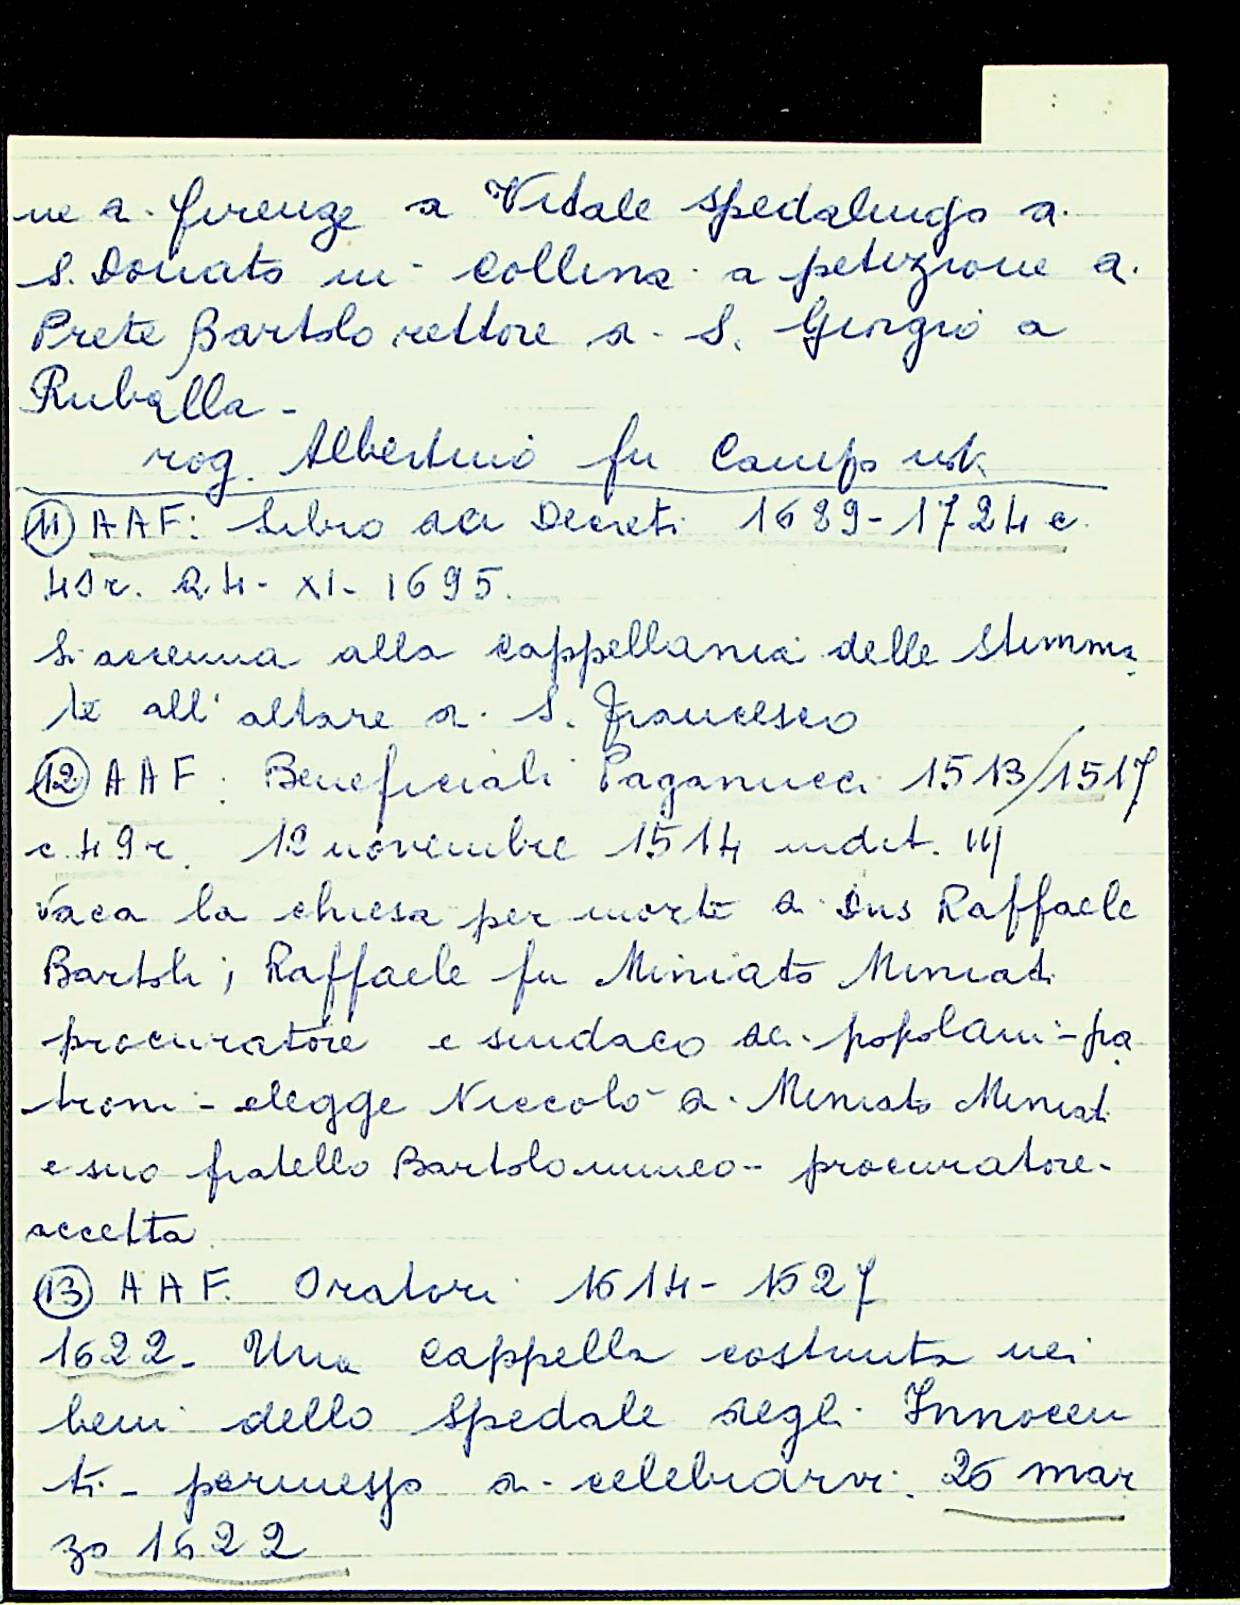 ne di Firenze a Vitale Spedalingo di
S. Donato in Collina a petizione di
Prete Bartolo rettore di S. Giorgio a
Ruballa -
rog. Albertino fu Campo not.
(11) AAF: Libro dei Decreti 1689-1724 c.
49r. 24-XI-1695.
Si accenna alla cappellania delle Stimma
te all'altare di S. Francesco
(12) AAF: Beneficiali Paganucci 1513/1517
c. 49r. 12 novembre 1514 indit. III
Vaca la chiesa per morte di Dns Raffaele
Bartoli; Raffaele fu Miniato Miniati
procuratore e sindaco dei popolani - pa
troni - elegge Niccolò di Miniato Miniati
e suo fratello Bartolommeo - procuratore -
accetta
(13) AAF. Oratori 1614-1627
1622 - Una cappella costruita nei
beni dello Spedale degli Innocen
ti - permesso di celebrarvi. 26 mar
zo 1622